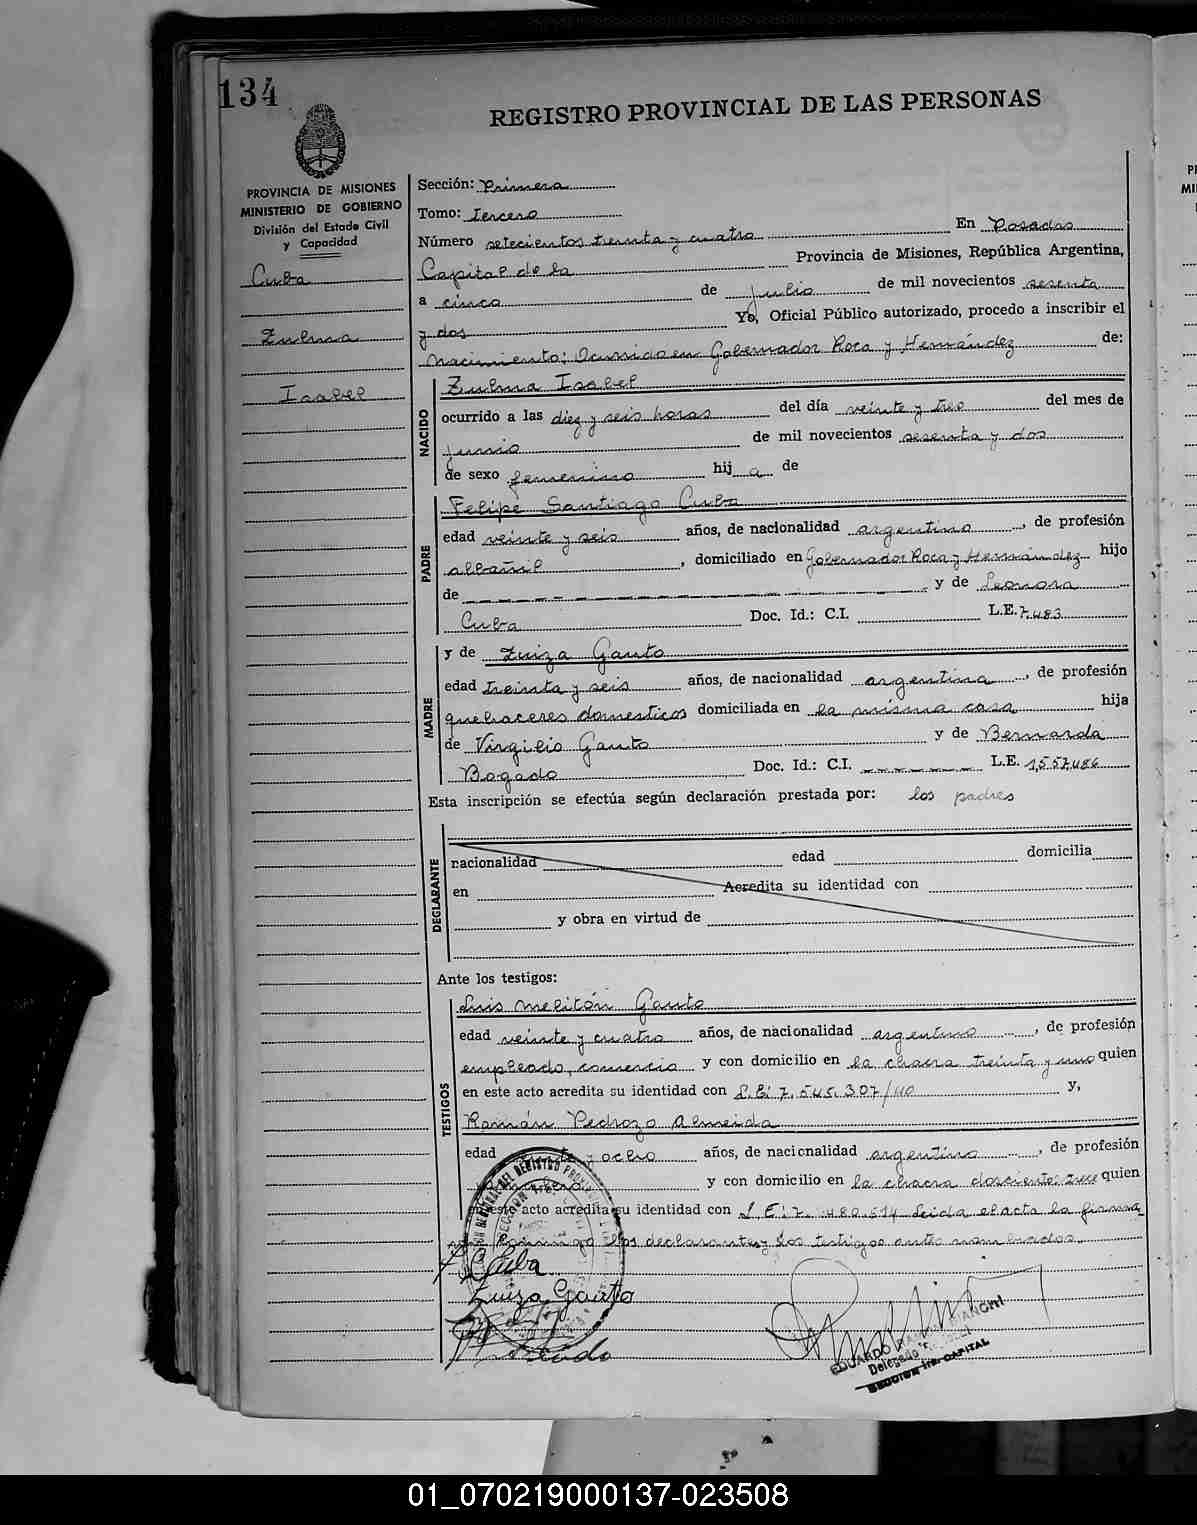 134
REGISTRO PROVINCIAL DE LAS PERSONAS
PROVINCIA DE MISIONES
MINISTERIO DE GOBIERNO
División del Estado Civil
y Capacidad
Cuba
Zulma
Isabel
Sección: Primera
Tomo: tercero
Número setecientos treinta y cuatro En Posadas
Capital de la Provincia de Misiones, República Argentina,
a cinco de Julio de mil novecientos sesenta
y dos Yo, Oficial Público autorizado, procedo a inscribir el
Nacimiento: Ocurrido en Gobernador Roca y Hernández de:
NACIDO
Zulma Isabel
ocurrido a las diez y seis horas del día veinte y tres del mes de
Junio de mil novecientos sesenta y dos
de sexo femenino hij a de
PADRE
Felipe Santiago Cuba
edad veinte y seis años, de nacionalidad argentino, de profesión
albañil, domiciliado en Gobernador Roca y Hernández hijo
de y de Leonora
Cuba Doc. Id.: C.I. L.E. 7.483
MADRE
y de Luiza Gauto
edad treinta y seis años, de nacionalidad argentina, de profesión
quehaceres domesticos domiciliada en la misma casa hija
de Virgilio Gauto y de Bernarda
Bogado Doc. Id.: C.I. L.E. 1,557.486
Esta inscripción se efectúa según declaración prestada por: los padres
DECLARANTE
nacionalidad edad domicilia
en Acredita su identidad con
y obra en virtud de
Ante los testigos:
TESTIGOS
Luis Melitón Gauto
edad veinte y cuatro años, de nacionalidad argentino, de profesión
empleado, comercio y con domicilio en la chacra treinta y uno quien
en este acto acredita su identidad con L.E: 7.545.307/ y,
Román Pedrozo Almeida
edad y ocho años, de nacionalidad argentino, de profesión
y con domicilio en la chacra doscientos tres quien
en este acto acredita su identidad con L.E: 7.480.514 Leida el acta la firman
conmigo los declarantes y los testigos antes nombrados.
F Cuba
Luiza Gauto
EDUARDO BIANCHI
Delegado
SECCION 1ra. CAPITAL
01_070219000137-023508